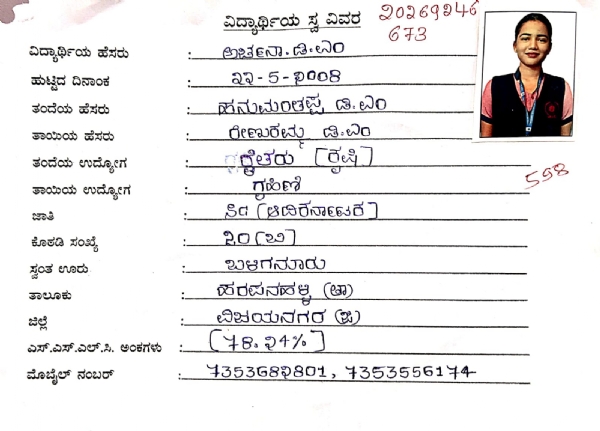 ವಿದ್ಯಾರ್ಥಿಯ ಸ್ವ ವಿವರ
20269246
673
ವಿದ್ಯಾರ್ಥಿಯ ಹೆಸರು : ಅರ್ಚನಾ. ಡಿ.ಎಂ
ಹುಟ್ಟಿದ ದಿನಾಂಕ : ೩೩-5-೨008
ತಂದೆಯ ಹೆಸರು : ಹನುಮಂತಪ್ಪ ಡಿ.ಎಂ
ತಾಯಿಯ ಹೆಸರು : ರೇಣುಕಮ್ಮ ಡಿ.ಎಂ
ತಂದೆಯ ಉದ್ಯೋಗ : ರೈತರು [ಕೃಷಿ]
598
ತಾಯಿಯ ಉದ್ಯೋಗ : ಗೃಹಿಣಿ
ಜಾತಿ : (ಆದಿಕರ್ನಾಟಕ]
ಕೊಠಡಿ ಸಂಖ್ಯೆ : ೩೦ (ಬಿ)
ಸ್ವಂತ ಊರು : ಬಳಿಗನೂರು
ತಾಲೂಕು : ಹರಪನಹಳ್ಳಿ (ತಾ)
ಜಿಲ್ಲೆ : ವಿಜಯನಗರ (ಜಿ)
ಎಸ್.ಎಸ್.ಎಲ್.ಸಿ. ಅಂಕಗಳು : [78.೨4%]
ಮೊಬೈಲ್ ನಂಬರ್ : 73536829801, 7353556174